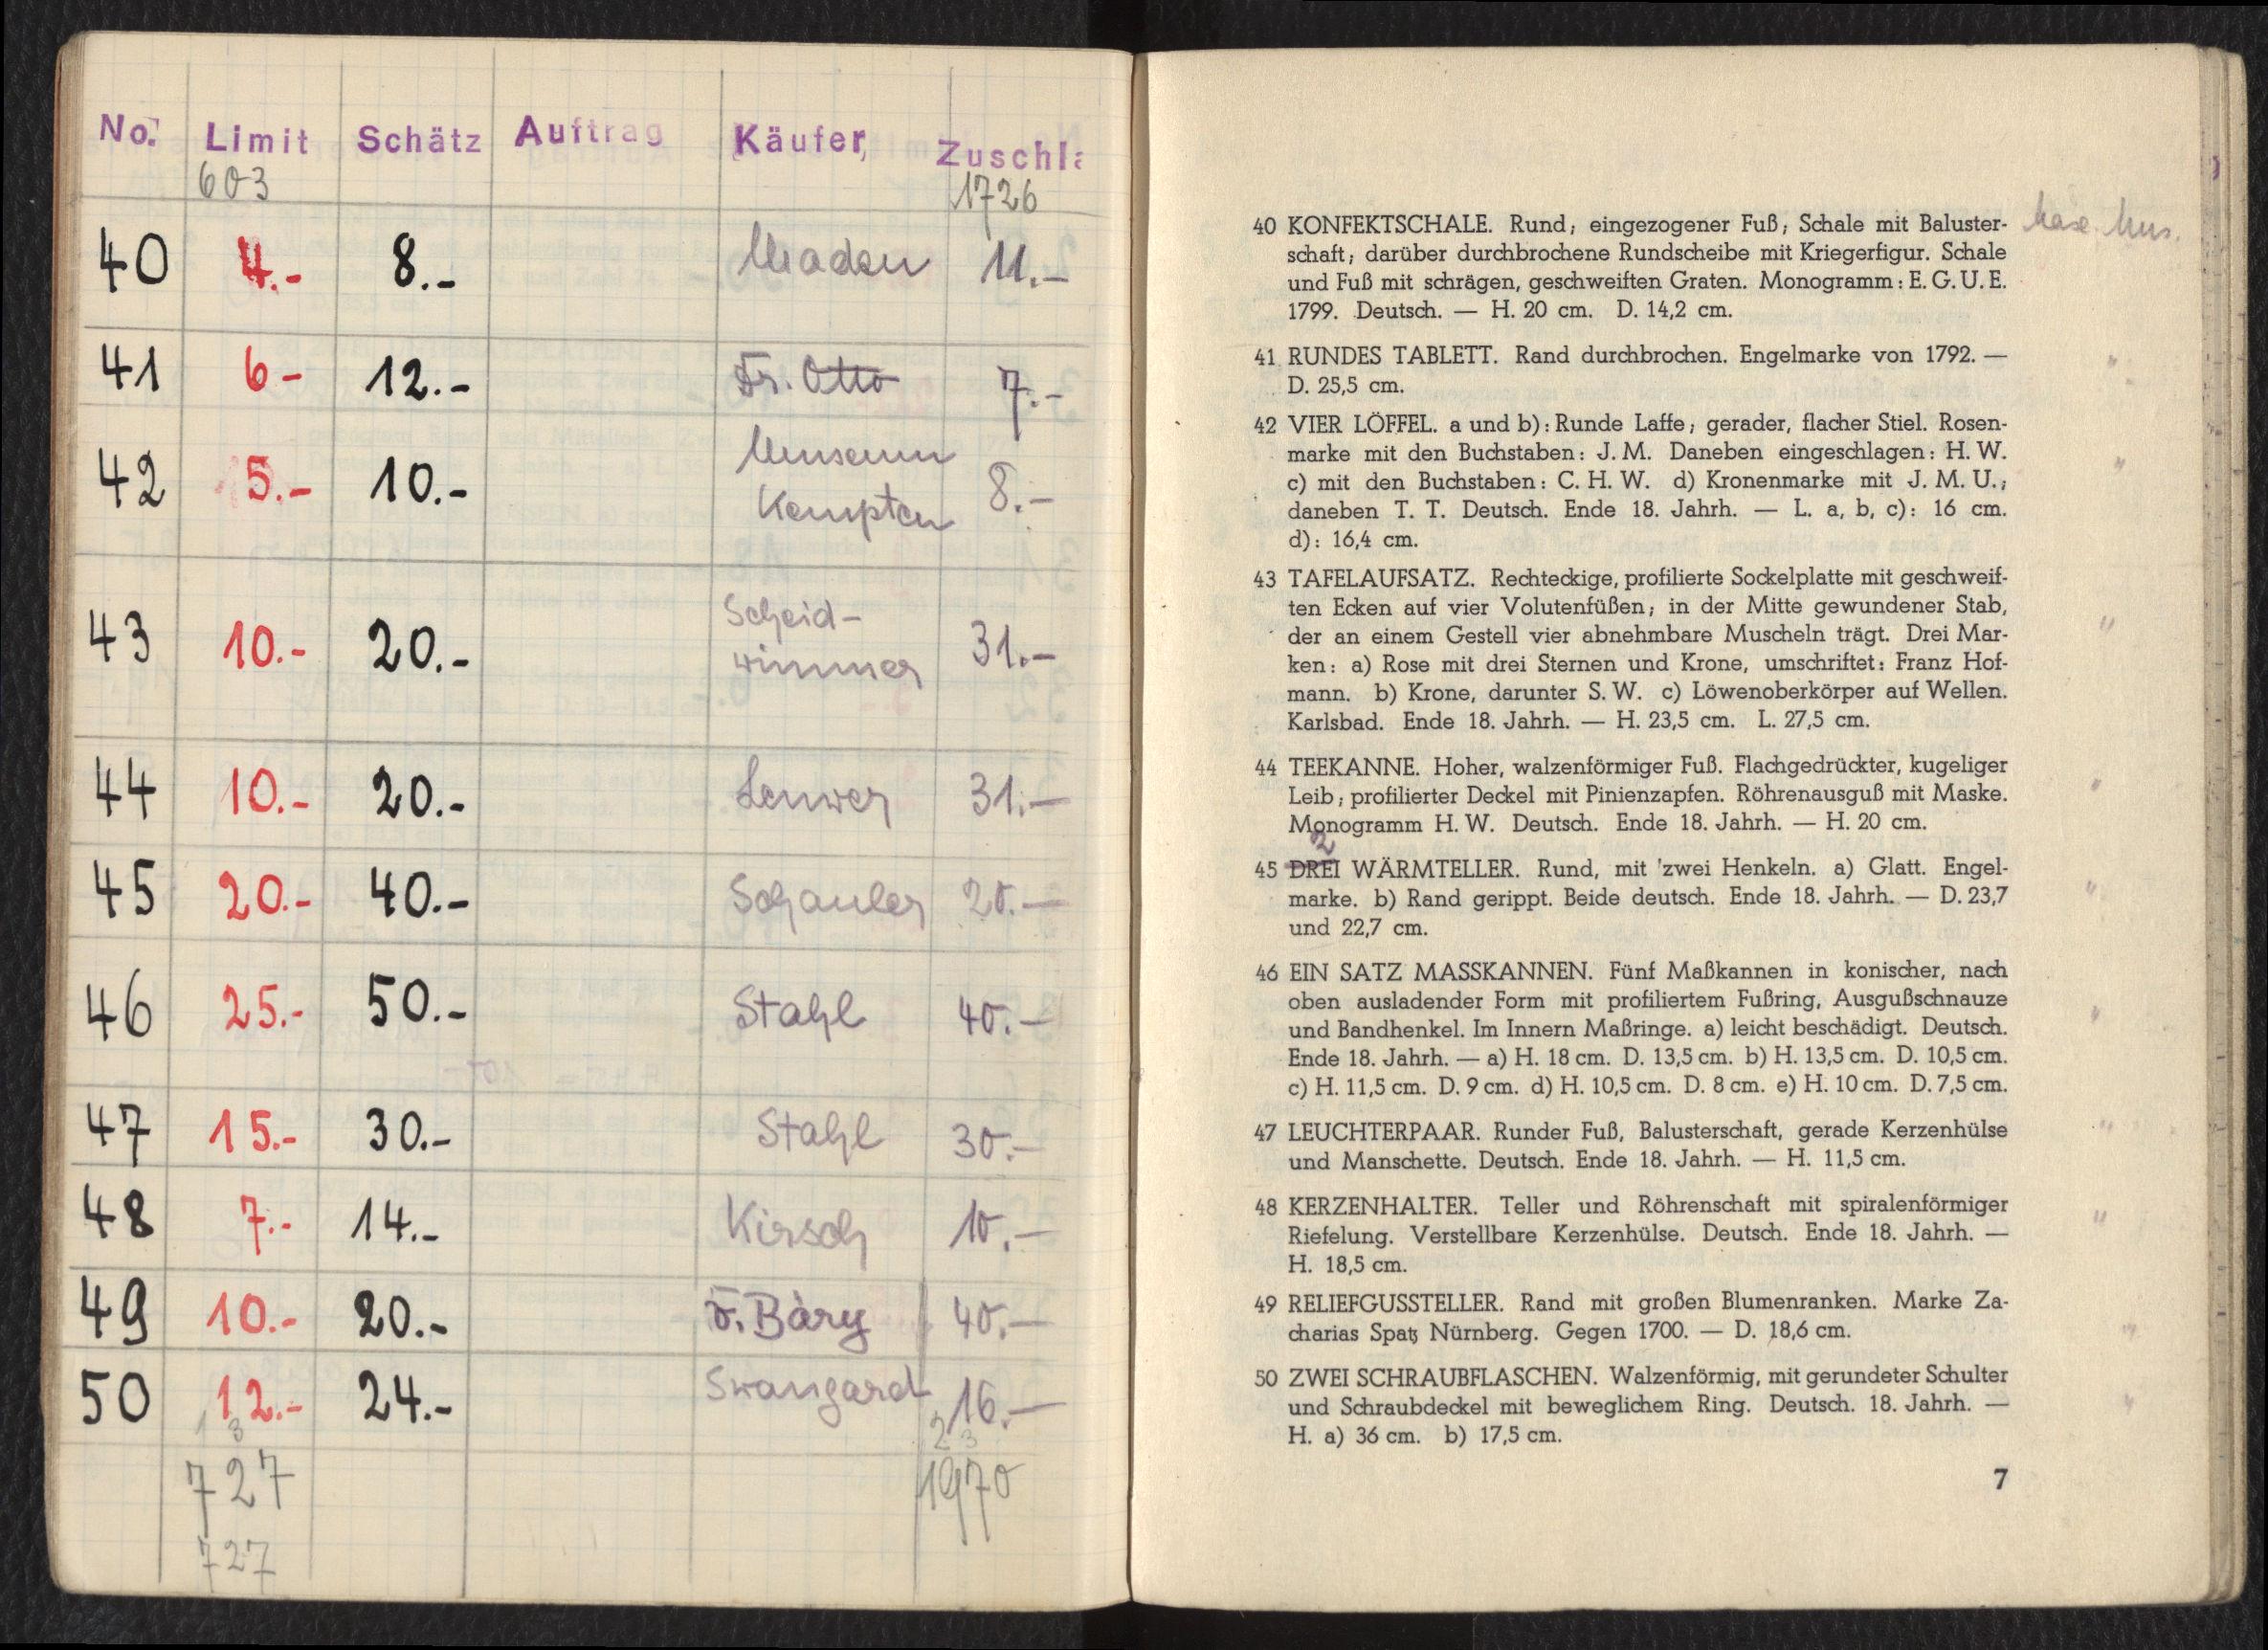 No. Limit Schätz Auftrag Käufer, Zuschla
603 1726
40 4.- 8.- Maden 11.-
41 6- 12.- Fr. Otto 7.-
42 5.- 10.- Museum Kempten 8.-
43 10.- 20.- Scheid-
wimmer 31.-
44 10.- 20.- 31.-
45 20.- 40.- Schauler 20.-
46 25.- 50.- Stahl 40.-
47 15.- 30.- Stahl 30.-
48 7.- 14.- Kirsch 10.-
49 10.- 20.- v. Bary 40.-
50 12.- 24.- Swangard 16.-
1 3 2 3
727 1970
727
40 KONFEKTSCHALE. Rund; eingezogener Fuß; Schale mit Baluster-
schaft; darüber durchbrochene Rundscheibe mit Kriegerfigur. Schale
und Fuß mit schrägen, geschweiften Graten. Monogramm: E. G. U. E.
1799. Deutsch. — H. 20 cm. D. 14,2 cm.
41 RUNDES TABLETT. Rand durchbrochen. Engelmarke von 1792. —
D. 25,5 cm.
42 VIER LÖFFEL. a und b): Runde Laffe; gerader, flacher Stiel. Rosen-
marke mit den Buchstaben: J. M. Daneben eingeschlagen: H. W.
c) mit den Buchstaben: C. H. W. d) Kronenmarke mit J. M. U.;
daneben T. T. Deutsch. Ende 18. Jahrh. — L. a, b, c): 16 cm.
d): 16,4 cm.
43 TAFELAUFSATZ. Rechteckige, profilierte Sockelplatte mit geschweif-
ten Ecken auf vier Volutenfüßen; in der Mitte gewundener Stab,
der an einem Gestell vier abnehmbare Muscheln trägt. Drei Mar-
ken: a) Rose mit drei Sternen und Krone, umschriftet: Franz Hof-
mann. b) Krone, darunter S. W. c) Löwenoberkörper auf Wellen.
Karlsbad. Ende 18. Jahrh. — H. 23,5 cm. L. 27,5 cm.
44 TEEKANNE. Hoher, walzenförmiger Fuß. Flachgedrückter, kugeliger
Leib; profilierter Deckel mit Pinienzapfen. Röhrenausguß mit Maske.
Monogramm H. W. Deutsch. Ende 18. Jahrh. — H. 20 cm.
2
45 DREI WÄRMTELLER. Rund, mit zwei Henkeln. a) Glatt. Engel-
marke. b) Rand gerippt. Beide deutsch. Ende 18. Jahrh. — D. 23,7
und 22,7 cm.
46 EIN SATZ MASSKANNEN. Fünf Maßkannen in konischer, nach
oben ausladender Form mit profiliertem Fußring, Ausgußschnauze
und Bandhenkel. Im Innern Maßringe. a) leicht beschädigt. Deutsch.
Ende 18. Jahrh. — a) H. 18 cm. D. 13,5 cm. b) H. 13,5 cm. D. 10,5 cm.
c) H. 11,5 cm. D. 9 cm. d) H. 10,5 cm. D. 8 cm. e) H. 10 cm. D. 7,5 cm.
47 LEUCHTERPAAR. Runder Fuß, Balusterschaft, gerade Kerzenhülse
und Manschette. Deutsch. Ende 18. Jahrh. — H. 11,5 cm.
48 KERZENHALTER. Teller und Röhrenschaft mit spiralenförmiger
Riefelung. Verstellbare Kerzenhülse. Deutsch. Ende 18. Jahrh. —
H. 18,5 cm.
49 RELIEFGUSSTELLER. Rand mit großen Blumenranken. Marke Za-
charias Spatz Nürnberg. Gegen 1700. — D. 18,6 cm.
50 ZWEI SCHRAUBFLASCHEN. Walzenförmig, mit gerundeter Schulter
und Schraubdeckel mit beweglichem Ring. Deutsch. 18. Jahrh. —
H. a) 36 cm. b) 17,5 cm.
7